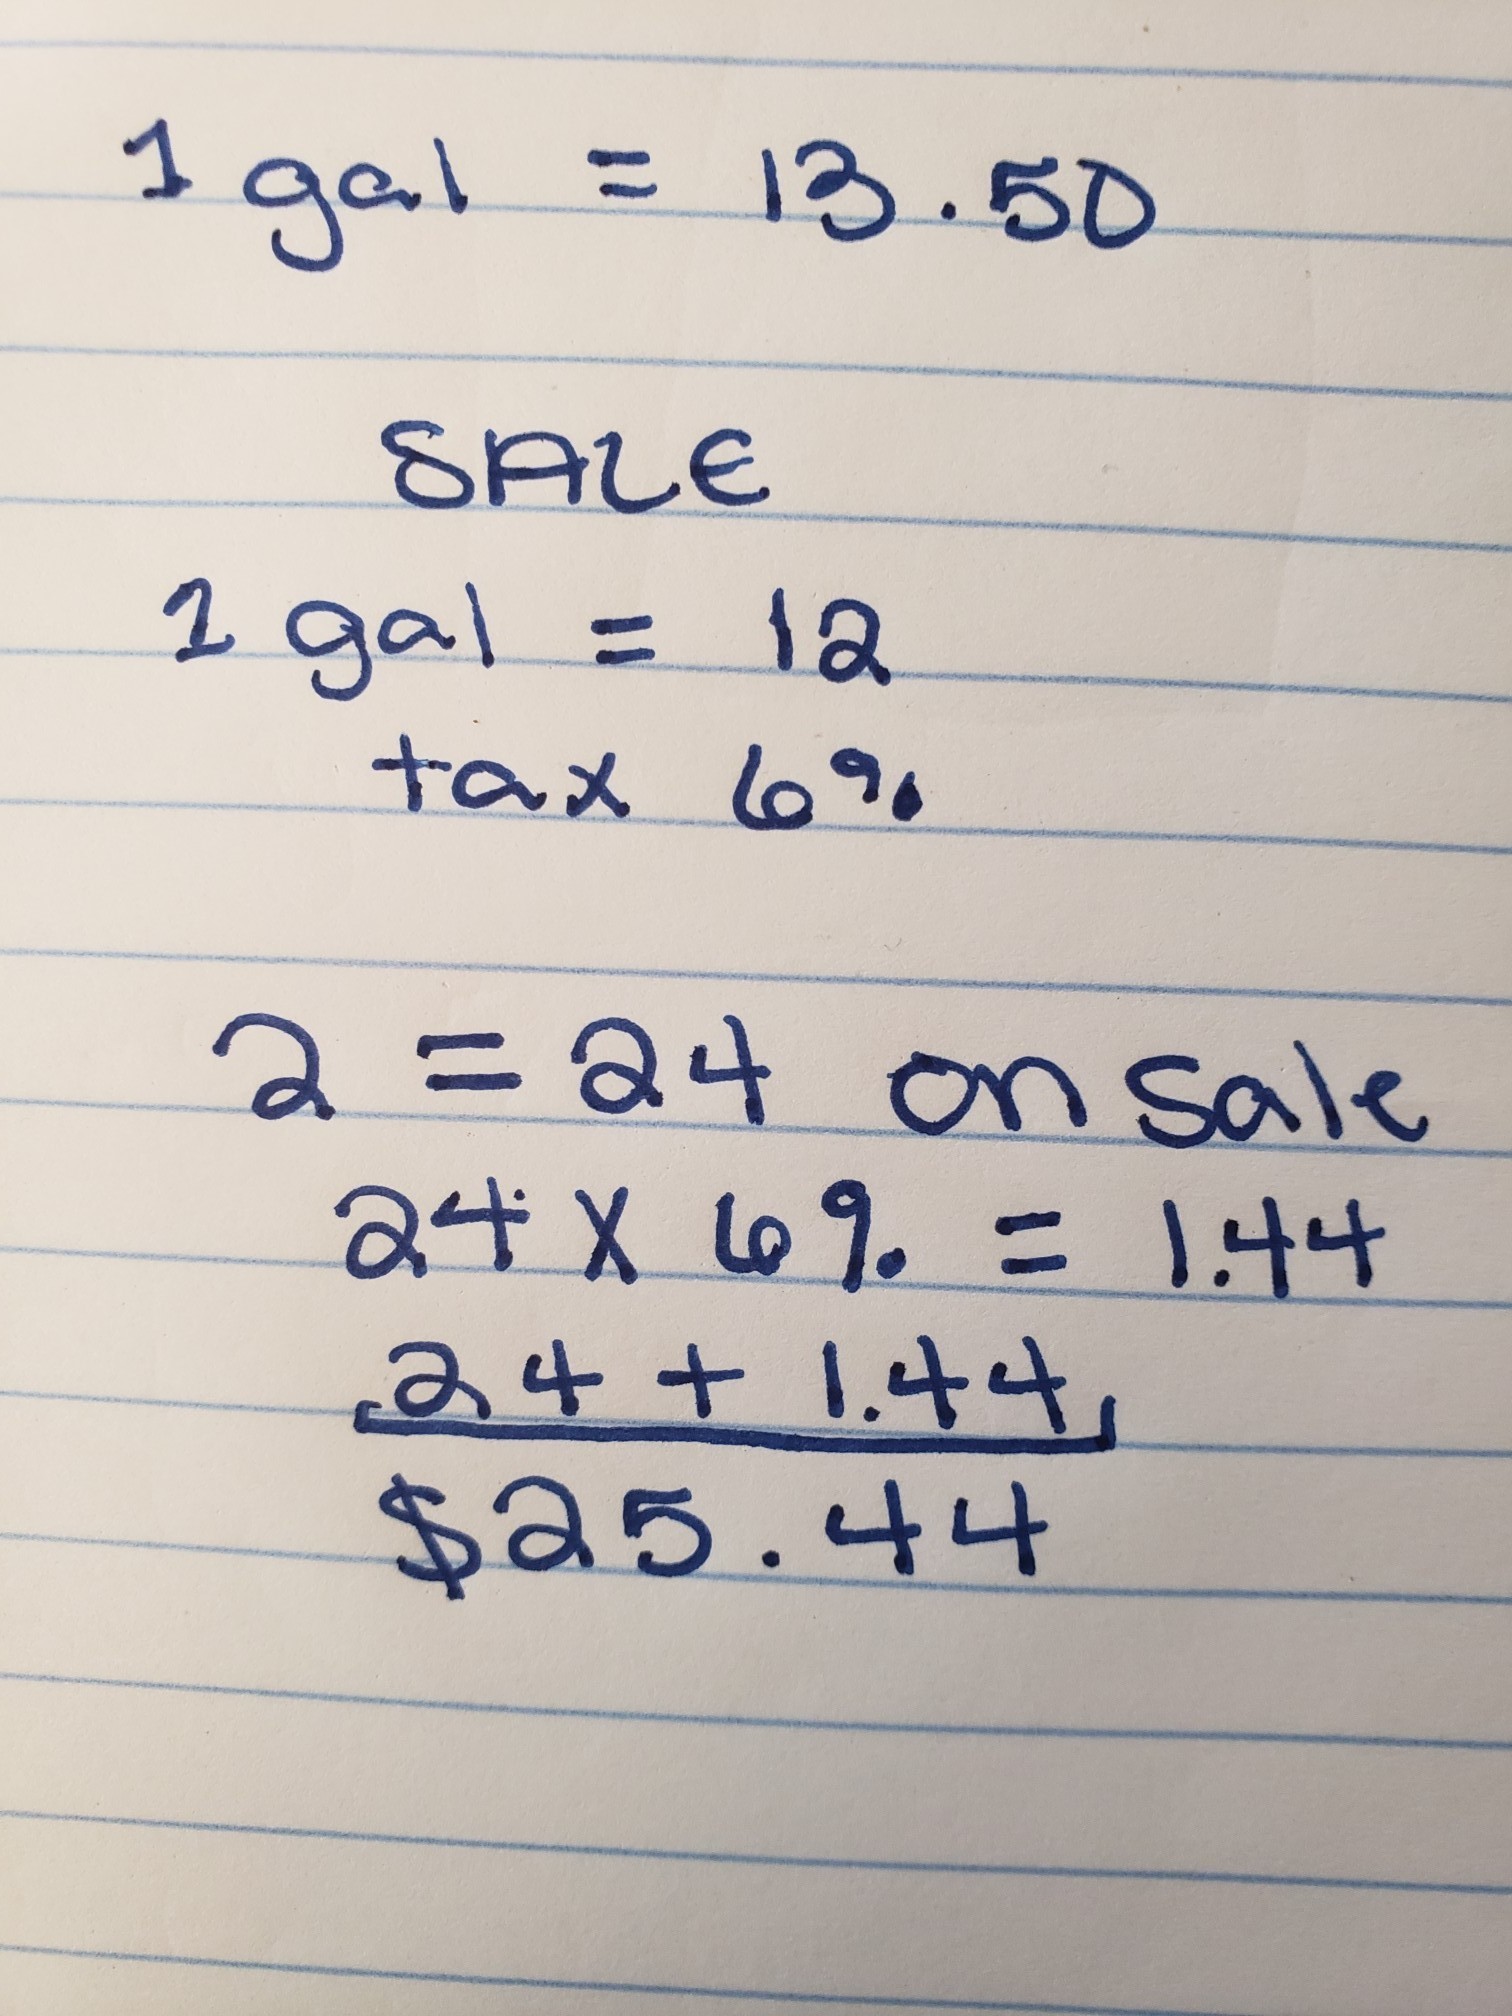 1 gal = 13.50
SALE
1 gal = 12
tax 6%
2 = 24 on sale
24 x 6% = 1.44
24 + 1.44
$25.44